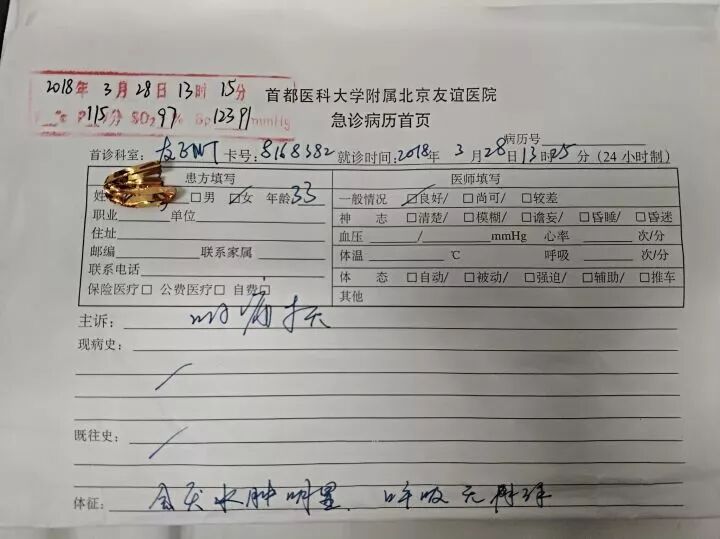 2018年3月28日13时15分
P115分 SO₂97% Bp 123/91mmHg
首都医科大学附属北京友谊医院
急诊病历首页
病历号
首诊科室: 卡号:8168382 就诊时间:2018年3月28日13时25分(24小时制)
患方填写 医师填写
姓 □男 ☑女 年龄33 一般情况 ☑良好/ □尚可/ □较差
职业 单位 神 志 □清楚/ □模糊/ □谵妄/ □昏睡/ □昏迷
住址 血压 / mmHg 心率 次/分
邮编 联系家属 体温 ℃ 呼吸 次/分
联系电话 体 态 □自动/ □被动/ □强迫/ □辅助/ □推车
保险医疗□ 公费医疗□ 自费□ 其他
主诉: 咽痛1天
现病史:
既往史:
体征: 会厌水肿明显. 呼吸无